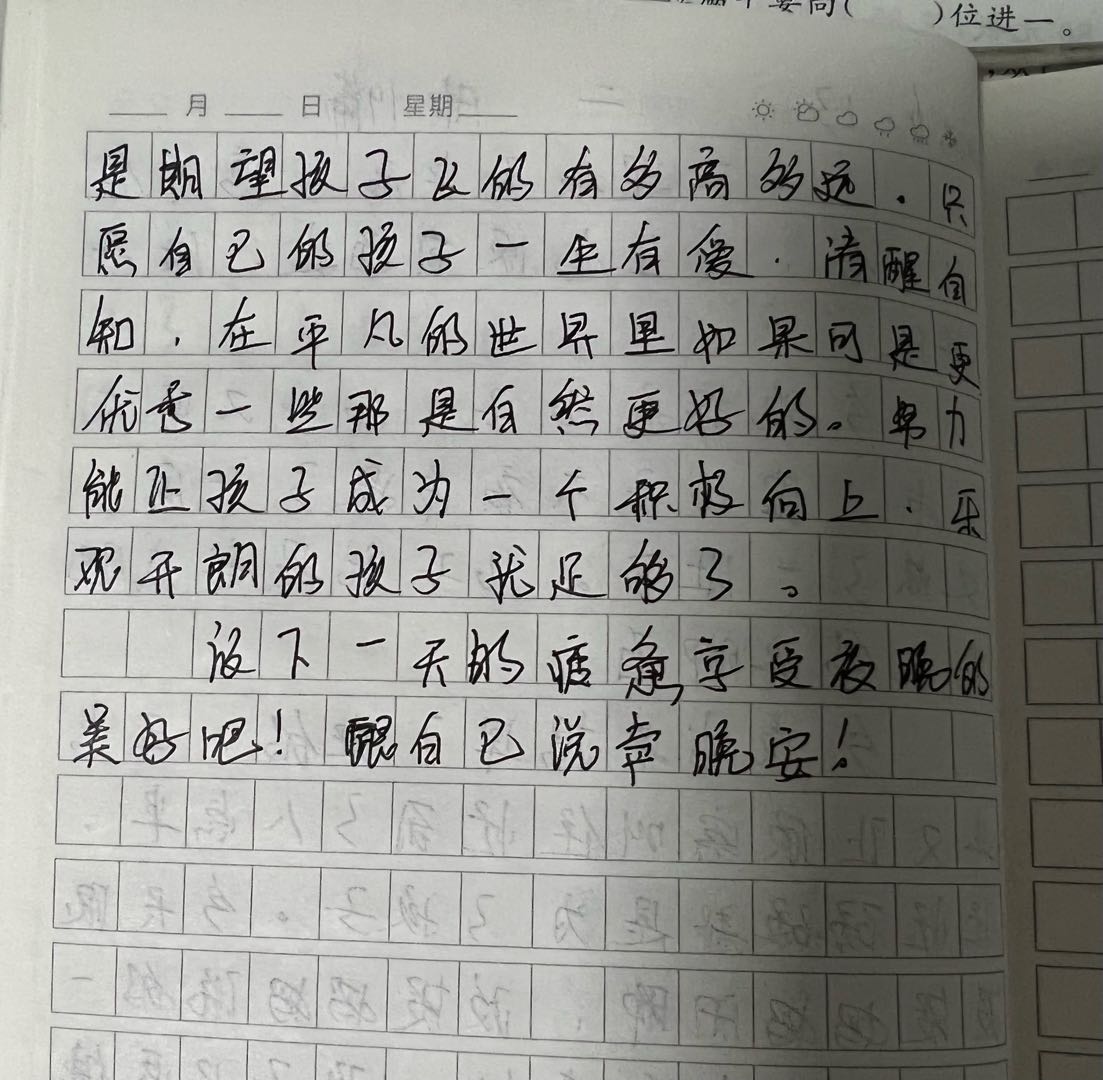 位进一。
月 日 星期
是期望孩子飞的有多高多远.只
愿自己的孩子一生有爱.清醒自
知.在平凡的世界里如果可是更
优秀一些那是自然更好的。努力
能让孩子成为一个积极向上.乐
观开朗的孩子就足够了。
放下一天的疲惫,享受夜晚的
美好吧!跟自己说声晚安!